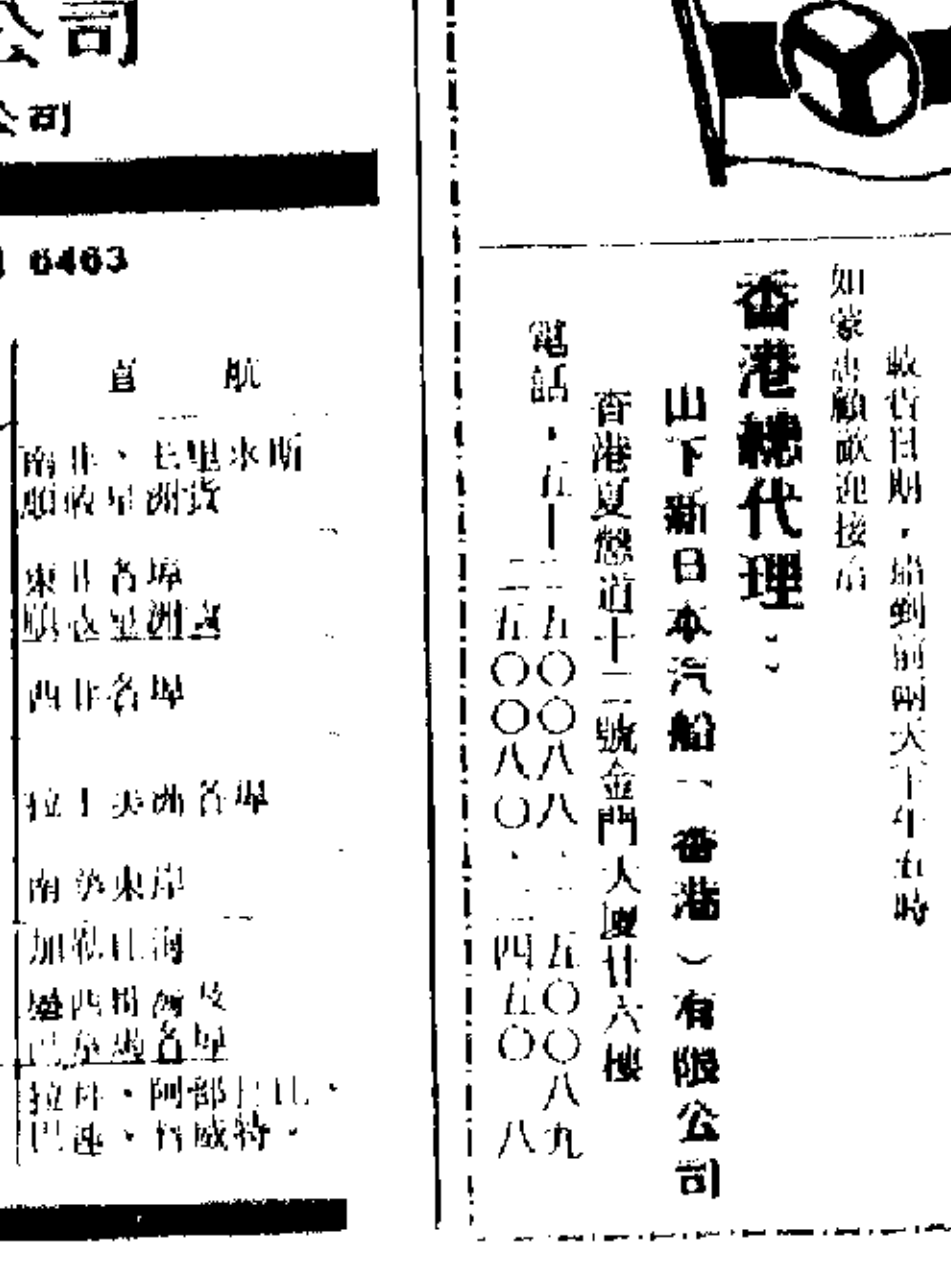 公司
公司
6463
直航
南非、毛里求斯
順收星洲貨
東非各埠
順收星洲貨
西非各埠
拉丁美洲各埠
南美東岸
加勒比海
墨西哥灣及
巴拿馬各埠
阿部
巴連、科威特。
收貨日期，船到前兩天下午五時
如蒙惠顧歡迎接洽
香港總代理：
山下新日本汽船（香港）有限公司
香港夏慤道十二號金門大廈廿六樓
電話．五—二五〇〇八八．二五〇〇八九
二五〇〇八〇．二四五〇 八